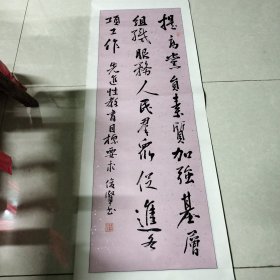 提高党員素質加強基層
組織服務人民群眾促進各
項工作 先進性教育目標要求 俊肇书